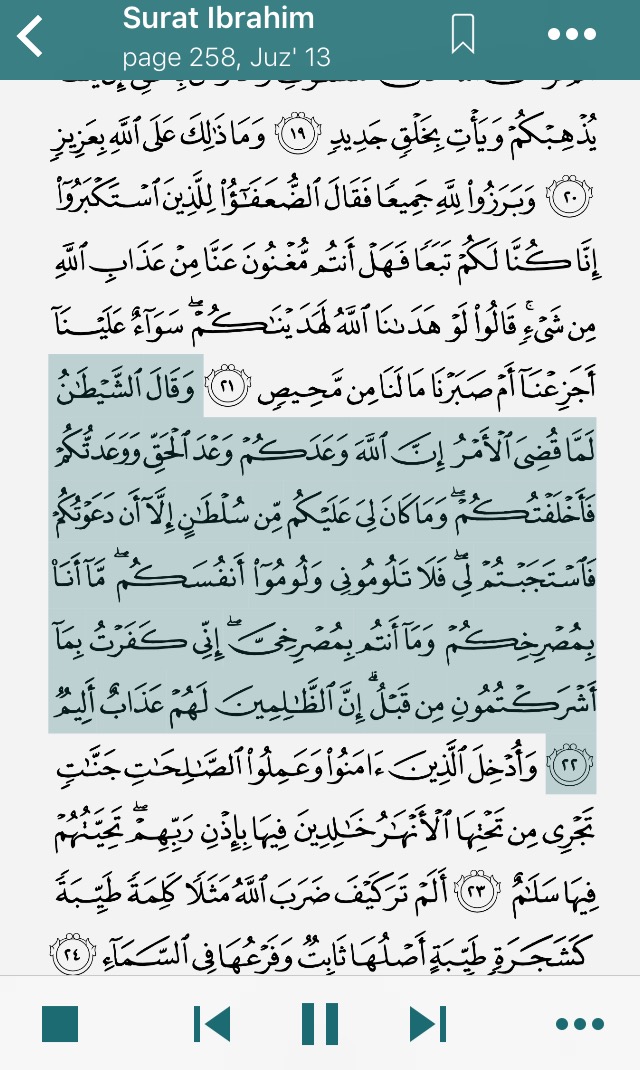 Surat Ibrahim
page 258, Juz' 13
يُذْهِبْكُمْ وَيَأْتِ بِخَلْقٍ جَدِيدٍ ١٩ وَمَا ذَٰلِكَ عَلَى ٱللَّهِ بِعَزِيزٍ
٢٠ وَبَرَزُوا۟ لِلَّهِ جَمِيعًا فَقَالَ ٱلضُّعَفَـٰٓؤُا۟ لِلَّذِينَ ٱسْتَكْبَرُوٓا۟
إِنَّا كُنَّا لَكُمْ تَبَعًا فَهَلْ أَنتُم مُّغْنُونَ عَنَّا مِنْ عَذَابِ ٱللَّهِ
مِن شَىْءٍۚ قَالُوا۟ لَوْ هَدَىٰنَا ٱللَّهُ لَهَدَيْنَـٰكُمْۖ سَوَآءٌ عَلَيْنَآ
أَجَزِعْنَآ أَمْ صَبَرْنَا مَا لَنَا مِن مَّحِيصٍ ٢١ وَقَالَ ٱلشَّيْطَـٰنُ
لَمَّا قُضِىَ ٱلْأَمْرُ إِنَّ ٱللَّهَ وَعَدَكُمْ وَعْدَ ٱلْحَقِّ وَوَعَدتُّكُمْ
فَأَخْلَفْتُكُمْۖ وَمَا كَانَ لِىَ عَلَيْكُم مِّن سُلْطَـٰنٍ إِلَّآ أَن دَعَوْتُكُمْ
فَٱسْتَجَبْتُمْ لِىۖ فَلَا تَلُومُونِى وَلُومُوٓا۟ أَنفُسَكُمۖ مَّآ أَنَا۠
بِمُصْرِخِكُمْ وَمَآ أَنتُم بِمُصْرِخِىَّۖ إِنِّى كَفَرْتُ بِمَآ
أَشْرَكْتُمُونِ مِن قَبْلُۗ إِنَّ ٱلظَّـٰلِمِينَ لَهُمْ عَذَابٌ أَلِيمٌ
٢٢ وَأُدْخِلَ ٱلَّذِينَ ءَامَنُوا۟ وَعَمِلُوا۟ ٱلصَّـٰلِحَـٰتِ جَنَّـٰتٍ
تَجْرِى مِن تَحْتِهَا ٱلْأَنْهَـٰرُ خَـٰلِدِينَ فِيهَا بِإِذْنِ رَبِّهِمْۖ تَحِيَّتُهُمْ
فِيهَا سَلَـٰمٌ ٢٣ أَلَمْ تَرَ كَيْفَ ضَرَبَ ٱللَّهُ مَثَلًا كَلِمَةً طَيِّبَةً
كَشَجَرَةٍ طَيِّبَةٍ أَصْلُهَا ثَابِتٌ وَفَرْعُهَا فِى ٱلسَّمَآءِ ٢٤